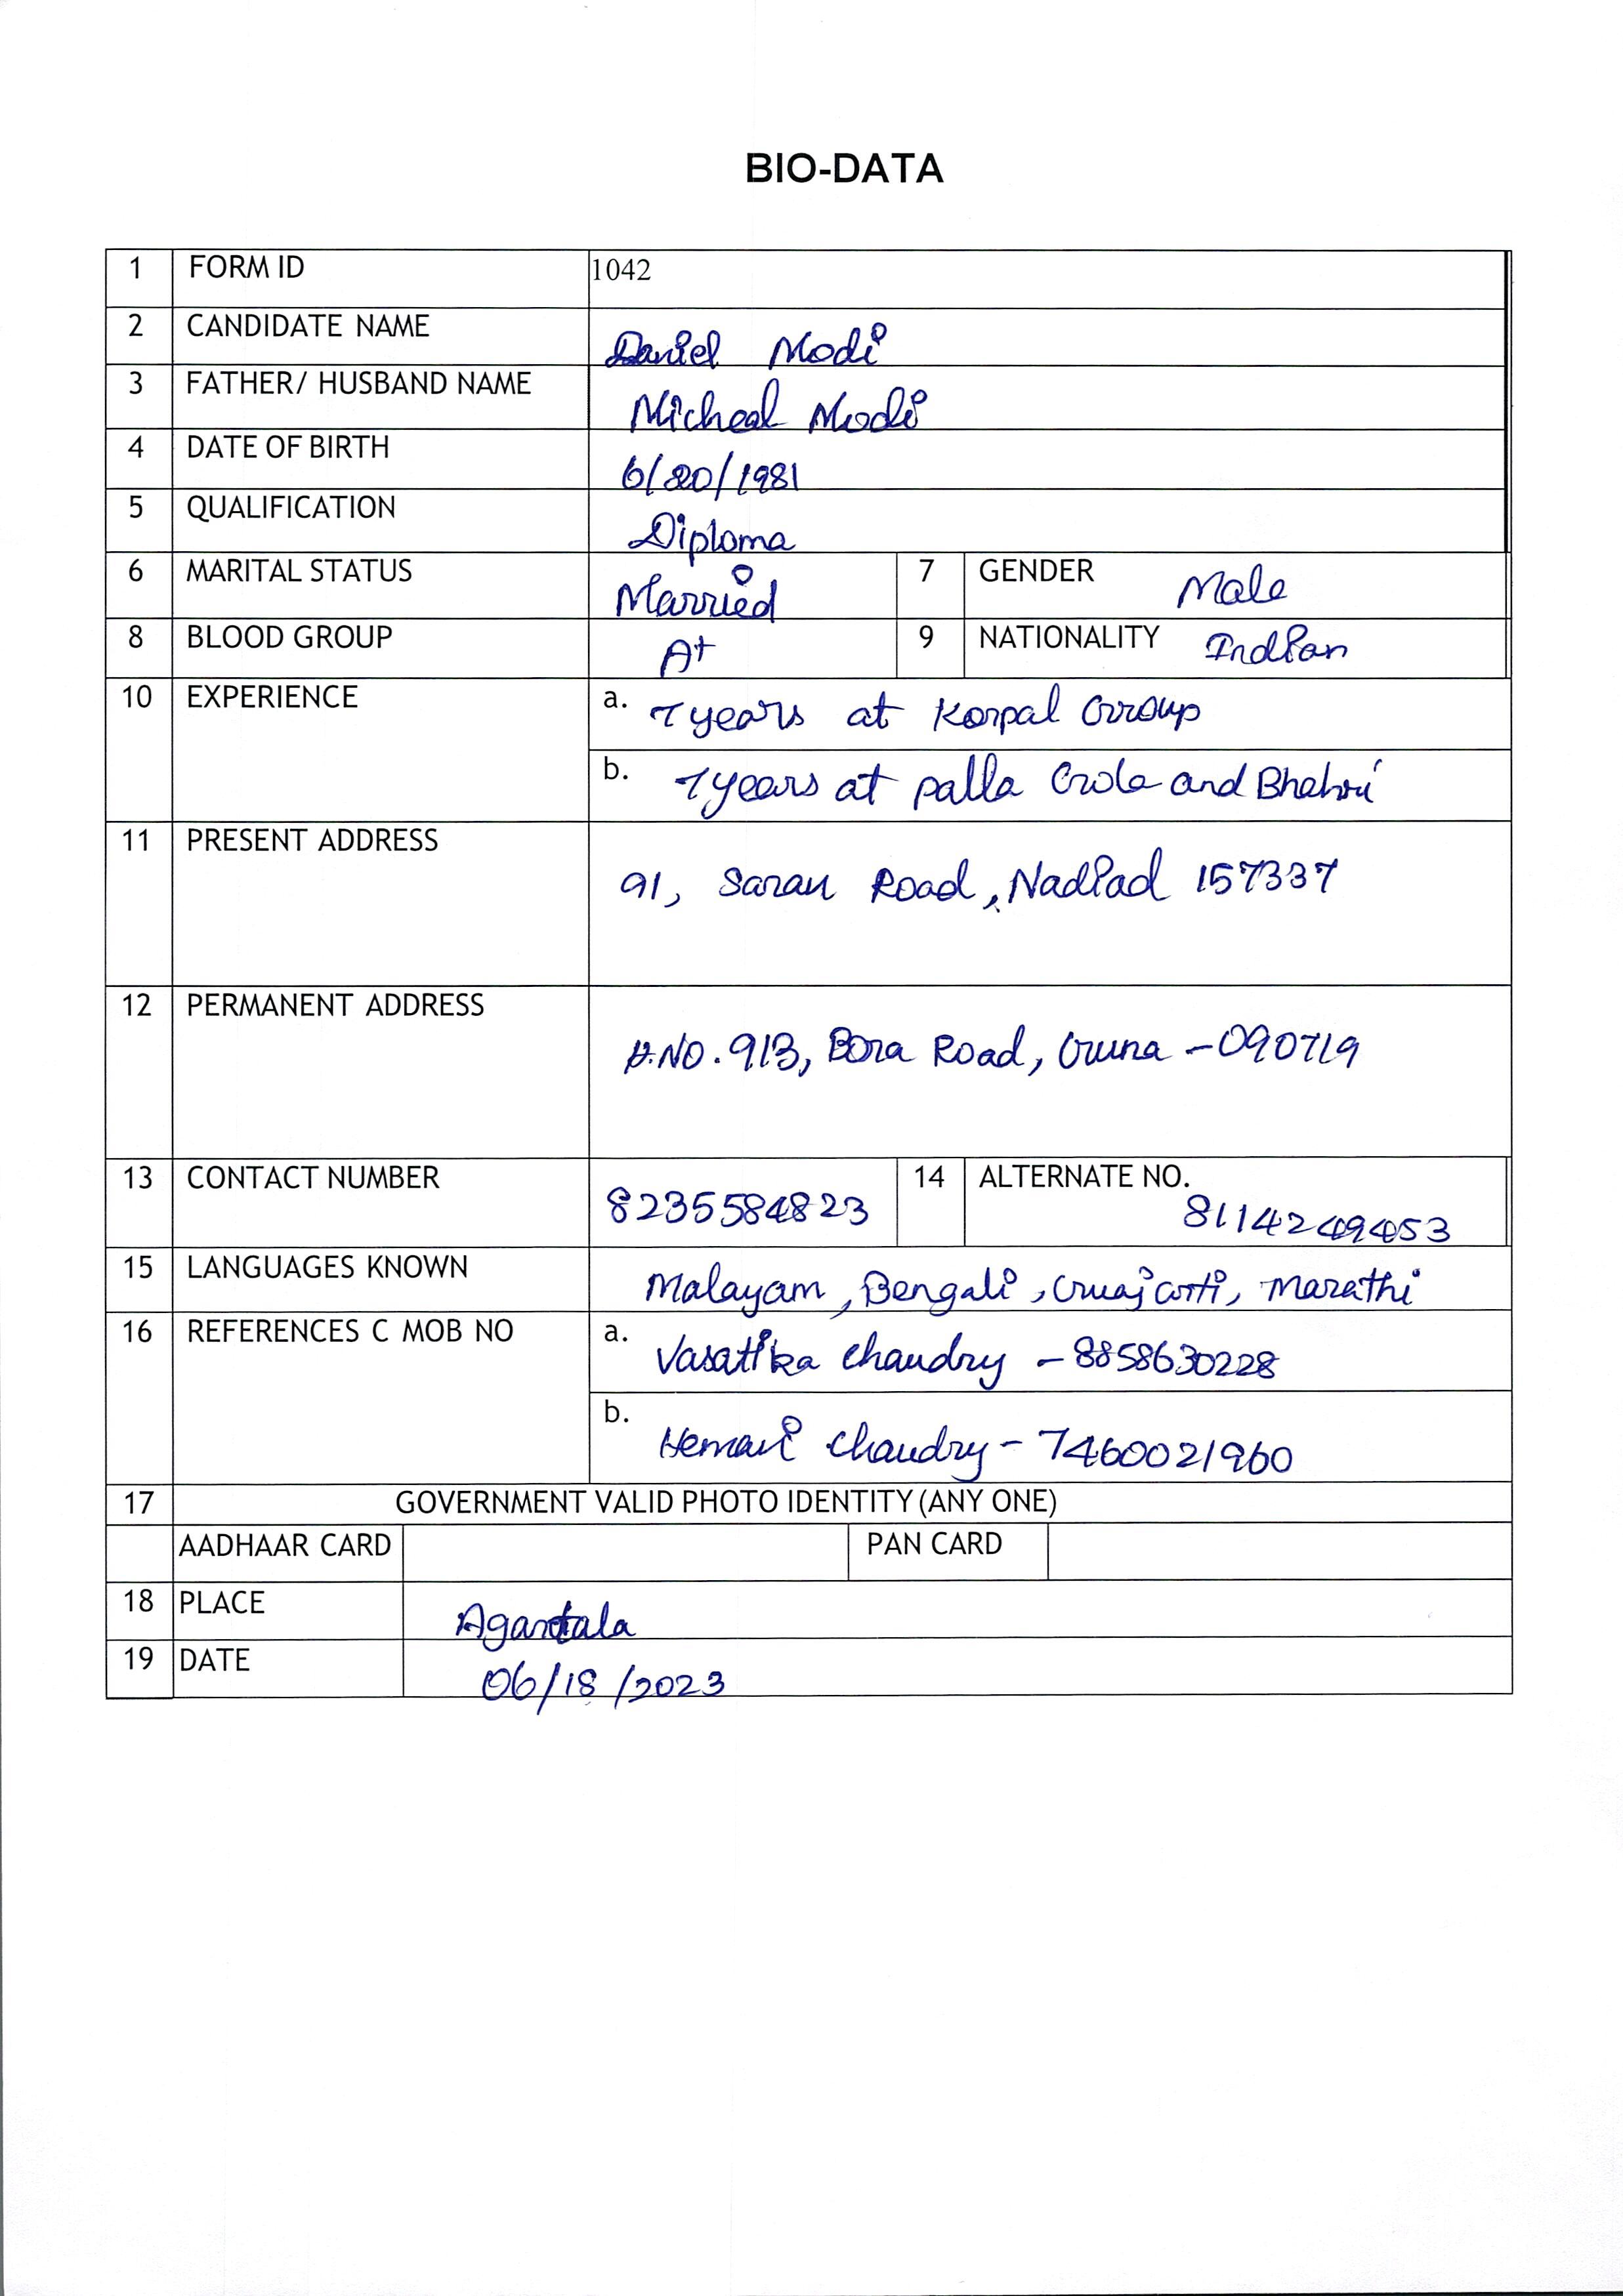 BIO-DATA
1 FORM ID 1042
2 CANDIDATE NAME Daniel Modi
3 FATHER/ HUSBAND NAME Micheal Modi
4 DATE OF BIRTH 6/20/1981
5 QUALIFICATION Diploma
6 MARITAL STATUS Married 7 GENDER Male
8 BLOOD GROUP A+ 9 NATIONALITY Indian
10 EXPERIENCE a. 7 years at Korpal Group
b. 7 years at palla Gola and
11 PRESENT ADDRESS
91, Saran Road, Nadiad 157337
12 PERMANENT ADDRESS
H.NO. 913, Bora Road, Guna - 090719
13 CONTACT NUMBER 8235584823 14 ALTERNATE NO. 8114249453
15 LANGUAGES KNOWN Malayam, Bengali, Gujarti, Marathi
16 REFERENCES C MOB NO a. Vasatika chaudry - 8858630228
b. chaudry - 7460021960
17 GOVERNMENT VALID PHOTO IDENTITY (ANY ONE)
AADHAAR CARD PAN CARD
18 PLACE Agartala
19 DATE 06/18/2023